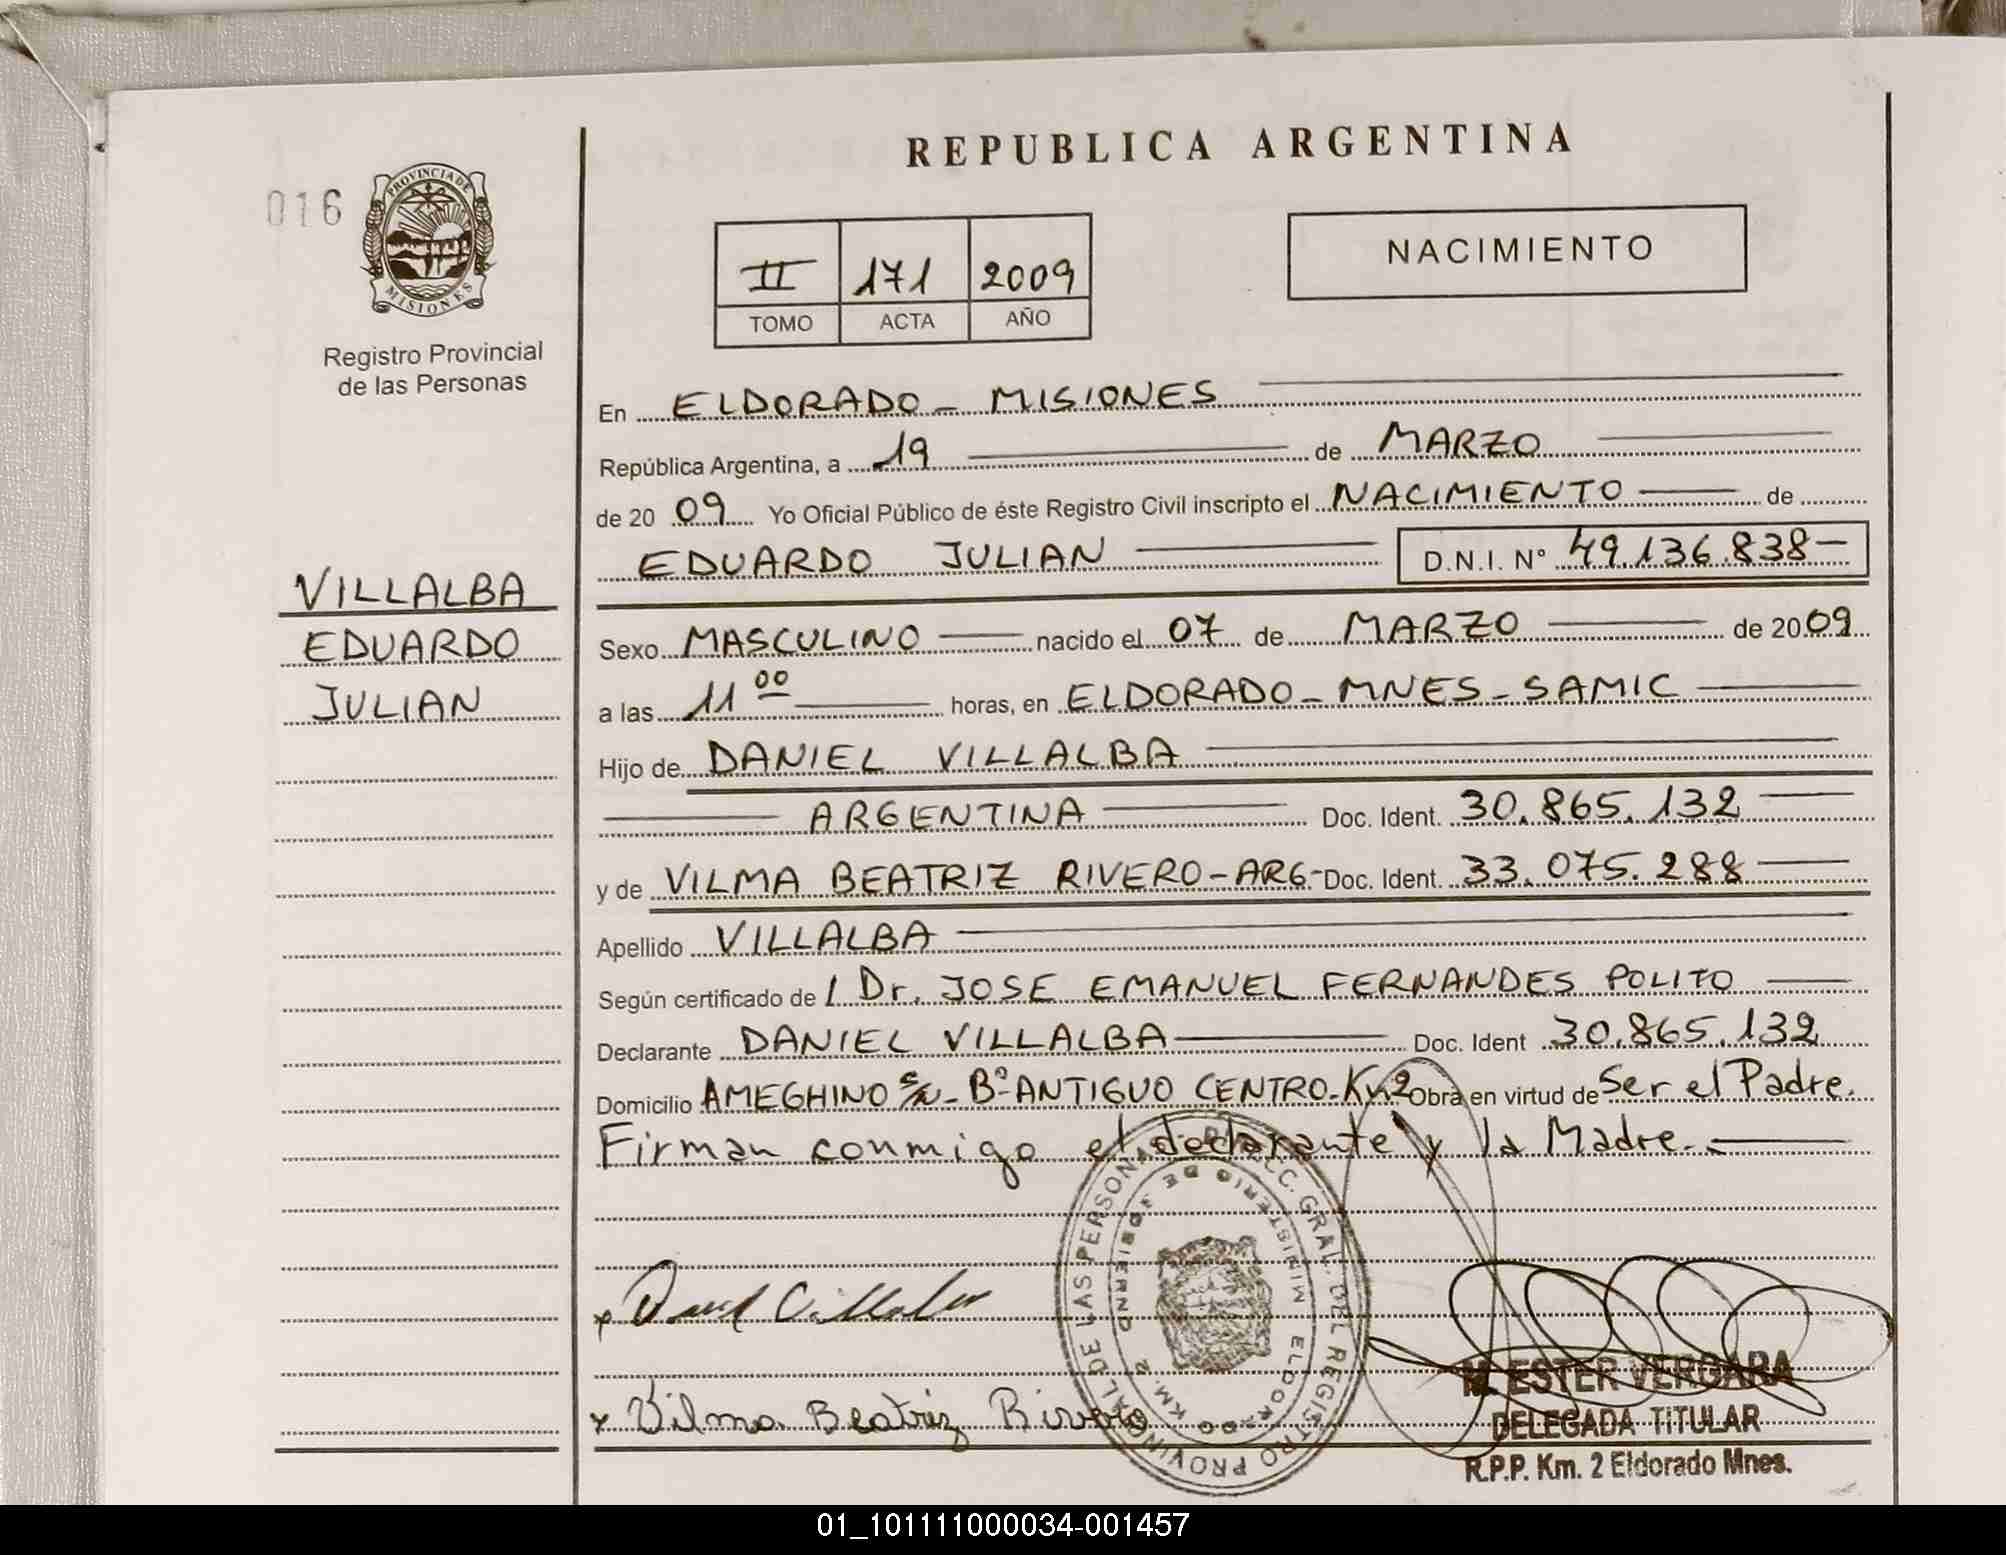 016
PROVINCIA DE
MISIONES
Registro Provincial
de las Personas
VILLALBA
EDUARDO
JULIAN
REPUBLICA ARGENTINA
II 171 2009
TOMO ACTA AÑO
NACIMIENTO
En ELDORADO - MISIONES
República Argentina, a 19 de MARZO
de 2009 Yo Oficial Público de éste Registro Civil inscripto el NACIMIENTO de
EDUARDO JULIAN D.N.I. N° 49.136.838
Sexo MASCULINO nacido el 07 de MARZO de 2009
a las 11 00 horas, en ELDORADO - MNES - SAMIC
Hijo de DANIEL VILLALBA
ARGENTINA Doc. Ident. 30.865.132
y de VILMA BEATRIZ RIVERO - ARG - Doc. Ident. 33.075.288
Apellido VILLALBA
Según certificado de / Dr. JOSE EMANUEL FERNANDES POLITO
Declarante DANIEL VILLALBA Doc. Ident 30.865.132
Domicilio AMEGHINO S/N - Bº ANTIGUO CENTRO - Km 2 Obra en virtud de Ser el Padre.
Firman conmigo el declarante y la Madre.
x Daniel Villalba
x Vilma Beatriz Rivero
DIRECC. GRAL. DEL REGISTRO PROVINCIAL DE LAS PERSONAS
MINISTERIO DE GOBIERNO
ELDORADO KM. 2
M. ESTER VERGARA
DELEGADA TITULAR
R.P.P. Km. 2 Eldorado Mnes.
01_101111000034-001457